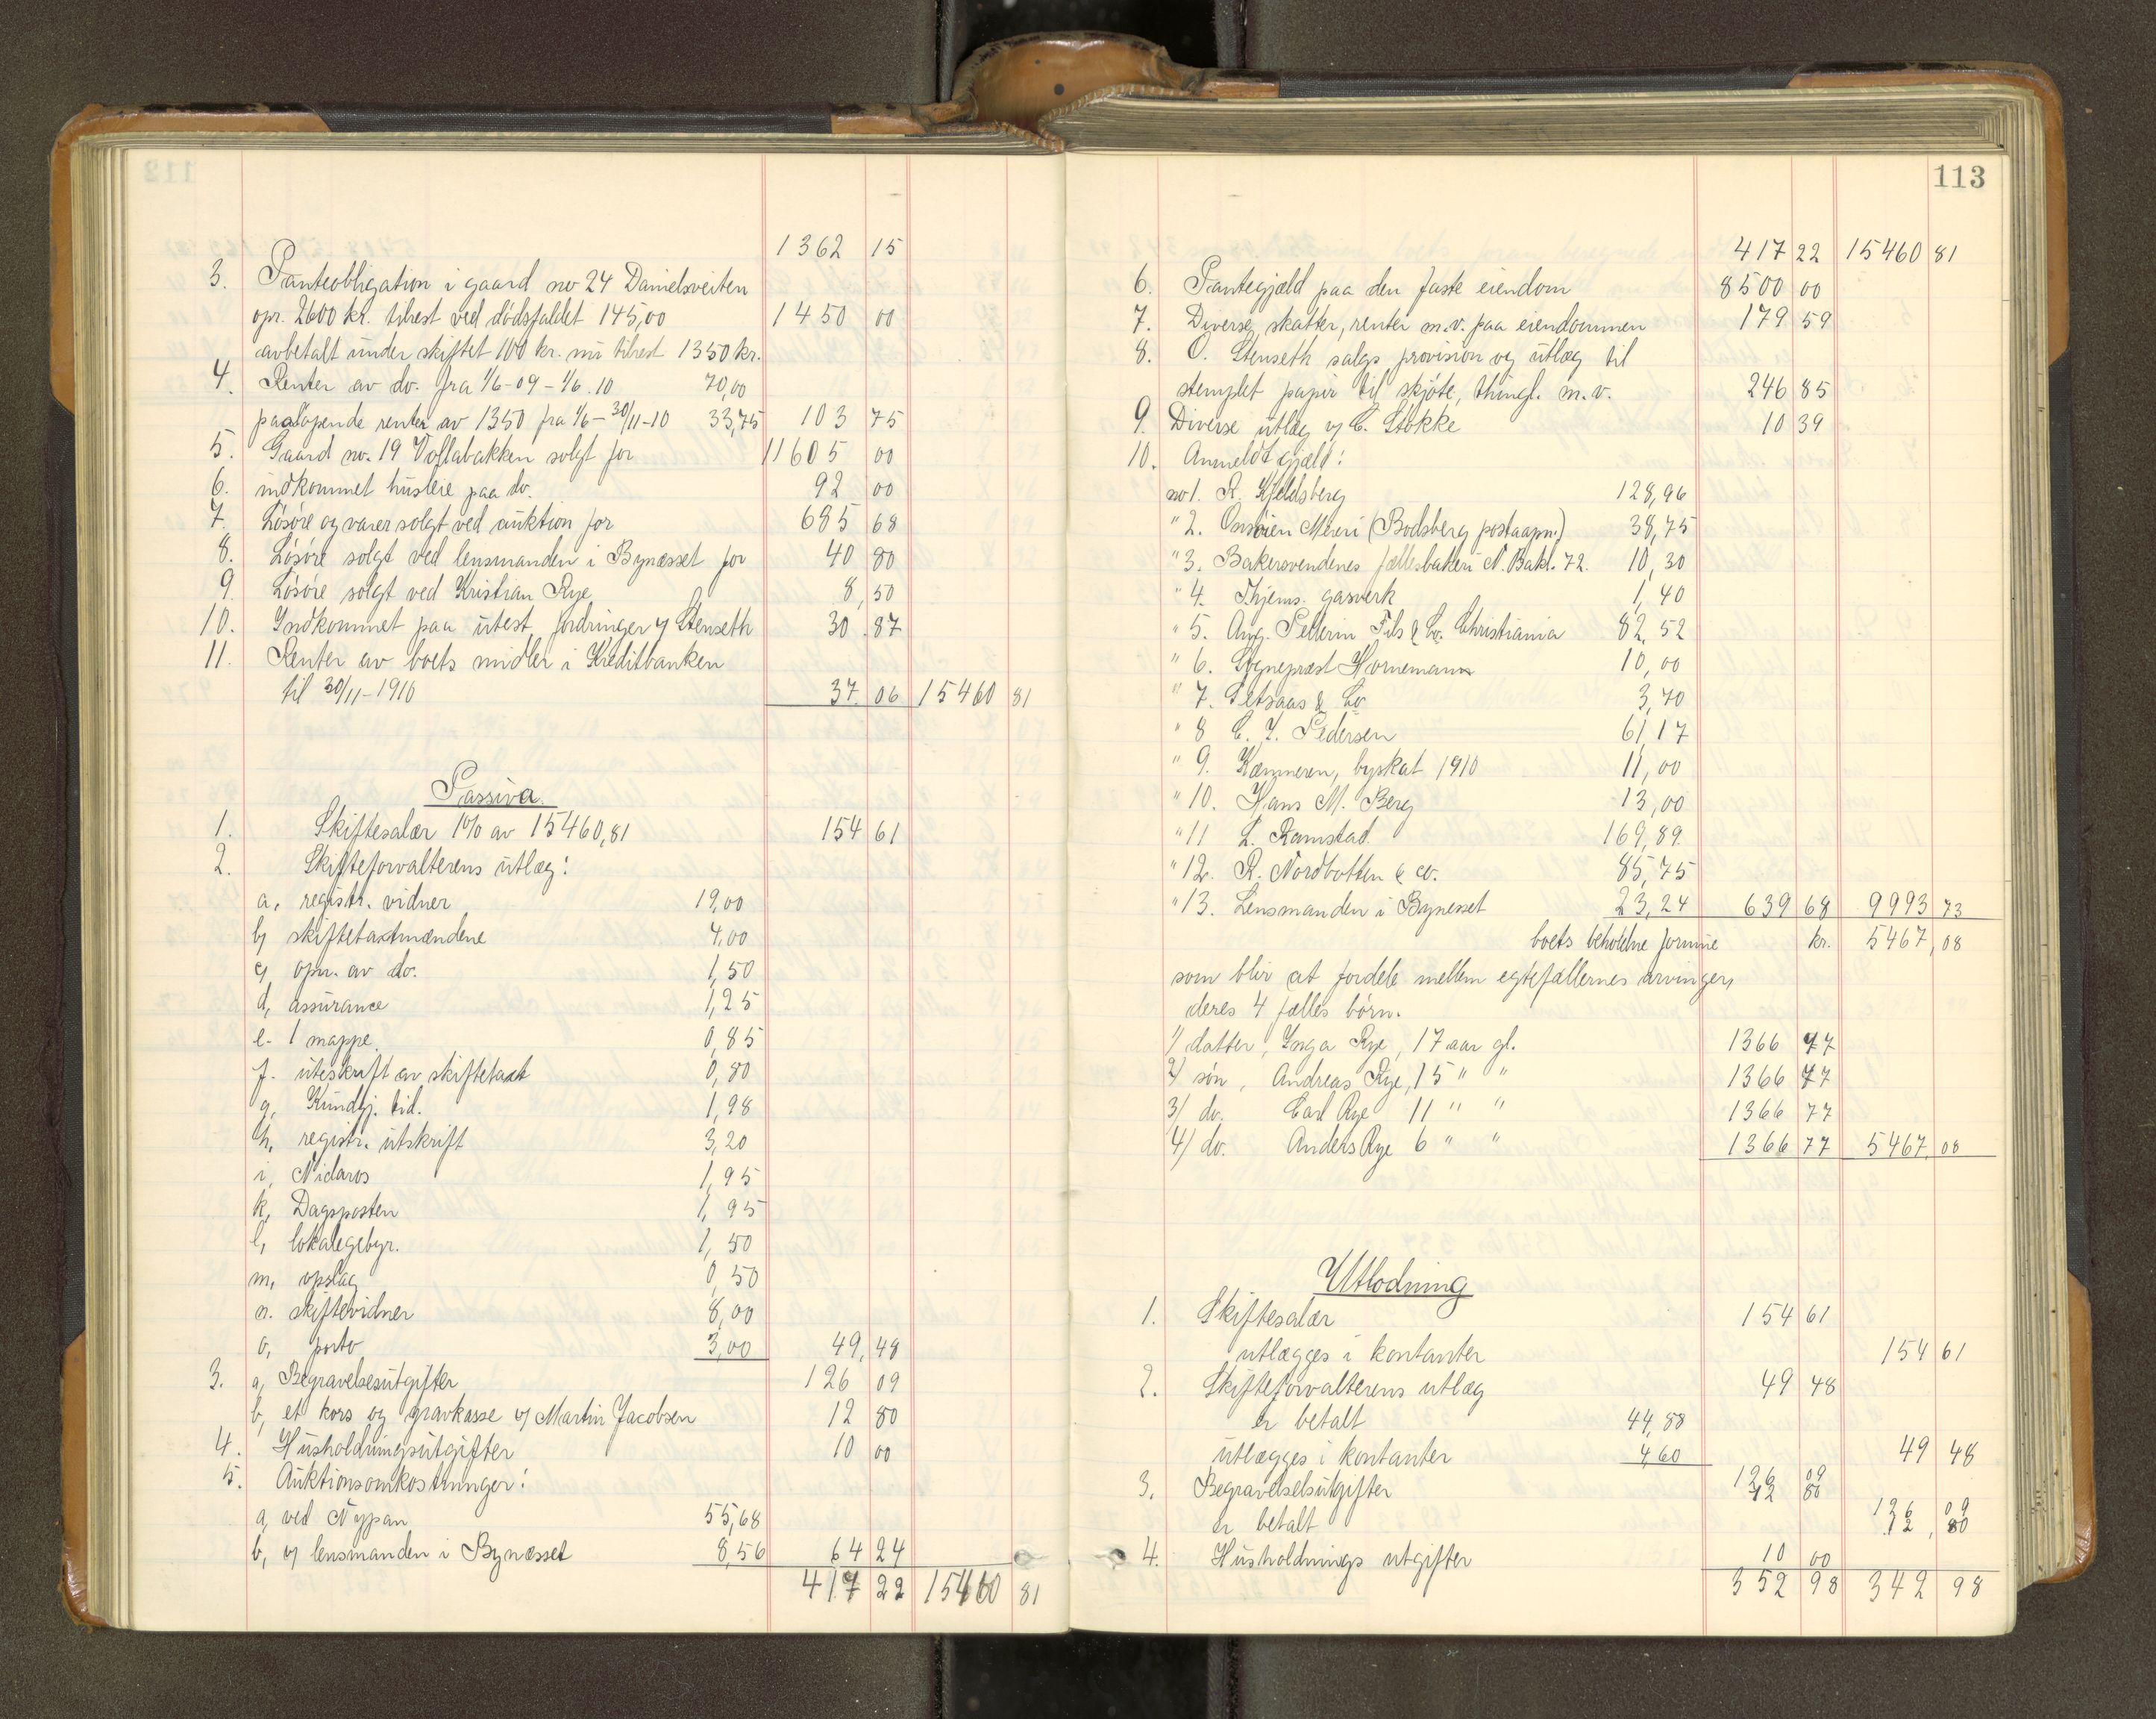 1362 15
3. Panteobligation i gaard no 24 Danielsveiten
opr. 2600 kr. tilrest ved dødsfaldet 145,00 1450 00
avbetalt under skiftet 100 kr. nu tilrest 1350 kr.
4. Renter av do. fra 1/6-09-1/6.10 70,00
paaløpende renter av 1350 fra 1/6-30/11-10 33,75 103 75
5. Gaard no. 19 Vollabakken solgt for 11605 00
6. indkommet husleie paa do. 92 00
7. Løsøre og varer solgt ved auktion for 685 68
8. Løsøre solgt ved lensmanden i Bynæsset for 40 80
9. Løsøre solgt ved Kristian Rye 8,50
10. Indkommet paa utest. fordringer v/ Stenseth 30.87
11. Renter av boets midler i Kreditbanken
til 30/11-1910 37.06 15460 81
Passiva.
1. Skiftesalær 1% av 15460,81 154 61
2. Skifteforvalterens utlæg:
a, registr. vidner 19,00
b, skiftetaxtmændene 4,00
c, opn. av do. 1,50
d, assurance 1,25
e. 1 mappe. 0,85
f. utskrift av skiftetaxt 0,80
g, Kundgj. tid. 1,98
h, registr. utskrift 3,20
i, Nidaros 1,95
k, Dagsposten 1,95
l, lokalegebyr. 1,50
m, opslag 0,50
n. skiftevidner 8,00
o, porto 3,00 49,48
3. a, Begravelsesutgifter 126 09
b, et kors og gravkasse v/ Martin Jacobsen 12 80
4. Husholdningsutgifter 10 00
5. Auktionsomkostninger:
a, ved Nypan 55,68
b, v/ lensmanden i Bynæsset 8,56 64 24
417 22 15460 81
113
417 22 15460 81
6. Pantegjæld paa den faste eiendom 8500 00
7. Diverse skatter, renter m.v. paa eiendommen 179 59
8. O. Stenseth salgs provision og utlæg til
stemplet papir til skjøte, thingl. m.v. 246 85
9. Diverse utlæg v/ C. Stokke 10 39
10. Anmeldt gjæld:
no 1. R. Kjeldsberg 128,96
" 2. Meieri (Bodsberg postaapn.) 38,75
" 3. Bakersvendenes fællesbakeri N. Bakl. 72. 10,30
" 4. Thjems. gasverk 1,40
" 5. Aug. Pellerin Fils & Co. Christiania 82,52
" 6. Sogneprest Hornemann 10,00
" 7. & Co 3,70
" 8 C. I. Pedersen 61,17
" 9. Kæmneren, byskat 1910 11,00
" 10. Hans M. Berg 13,00
" 11 L. Ramstad. 169,89.
" 12. R. Nordbotten & co. 85,75
" 13. Lensmanden i Bynesset 23,24 639 68 9993 73
boets beholdne formue kr. 5467,08
som blir at fordele mellem egtefællernes arvinger,
deres 4 fælles børn.
1/ datter, Inga Rye, 17 aar gl. 1366 77
2/ søn, Andreas Rye, 15 " " 1366 77
3/ do. Carl Rye 11 " " 1366 77
4/ do. Anders Rye 6 " " 1366 77 5467 08
Utlodning
1. Skiftesalær 154 61
utlægges i kontanter 154 61
2. Skifteforvalterens utlæg 49 48
er betalt 44,88
utlægges i kontanter 4,60 49 48
3. Begravelsesutgifter 126 09
12 80
er betalt 126 09
12,80
4. Husholdnings utgifter 10 00
352 98 342 98